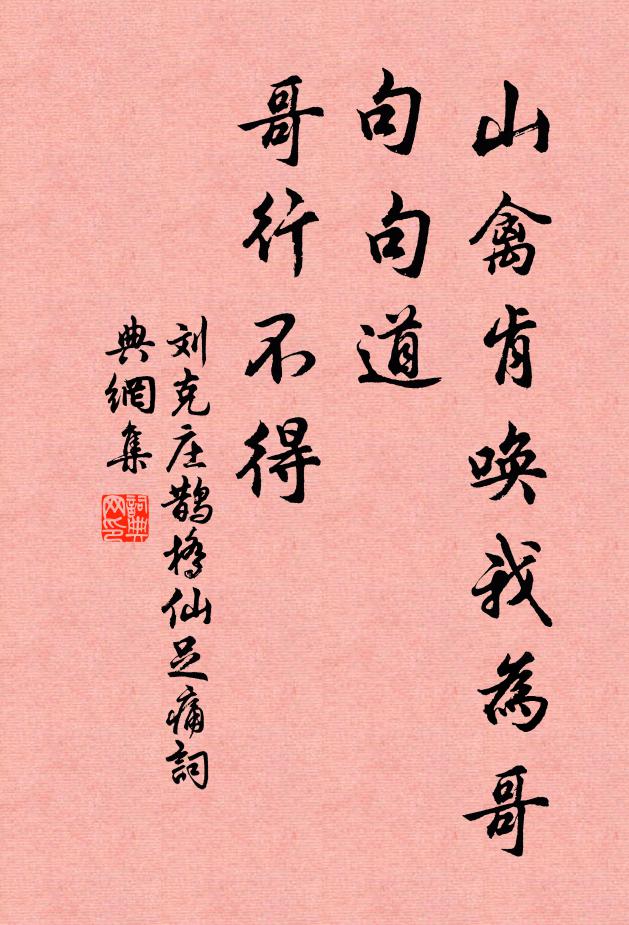 山禽肯唤我為哥
句句道
哥行不得
刘克庄鹊橋仙足痛詞
典網集
詞典网印